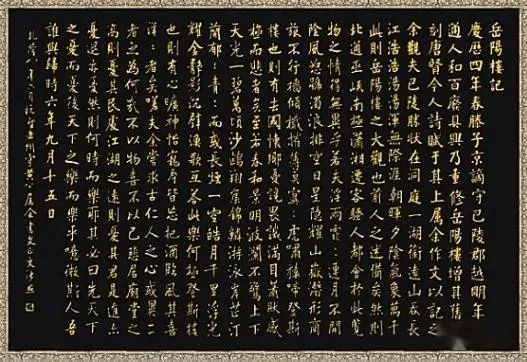 岳陽樓記
慶歷四年春滕子京謫守巴陵郡越明年
通人和百廢具興乃重修岳陽樓增其舊
刻唐賢今人詩賦于其上屬余作文以記之
余觀夫巴陵勝狀在洞庭一湖銜遠山吞長
江浩浩湯湯渾無際涯朝暉夕陰氣象萬千
此則岳陽樓之大觀也前人之述備矣然則
北通巫峽南極瀟湘遷客騷人都會於此覽
物之情得無異乎若夫淫雨霏:連月不開
陰風怒號濁浪排空日星隱耀山嶽潛形商
旅不行檣傾楫摧薄暮冥:虎嘯猿啼登斯
樓也則有去國懷鄉憂讒畏譏滿目蕭然感
極而悲者矣至若春和景明波瀾不驚上下
天光一碧萬頃沙鷗翔集錦鱗游泳岸芷汀
蘭郁:青:而或長煙一空皓月千里浮光
耀金靜影沉璧漁歌互答此樂何極登斯樓
也則有心曠神怡寵辱皆忘把酒臨風其喜
洋:者矣嗟夫余嘗求古仁人之心或異二
者之為何哉不以物喜不以己悲居廟堂之
高則憂其民處江湖之遠則憂其君是進亦
憂退亦憂然則何時而樂耶其必曰先天下
之憂而憂後天下之樂而樂乎噫微斯人吾
誰與歸時六年九月十五日